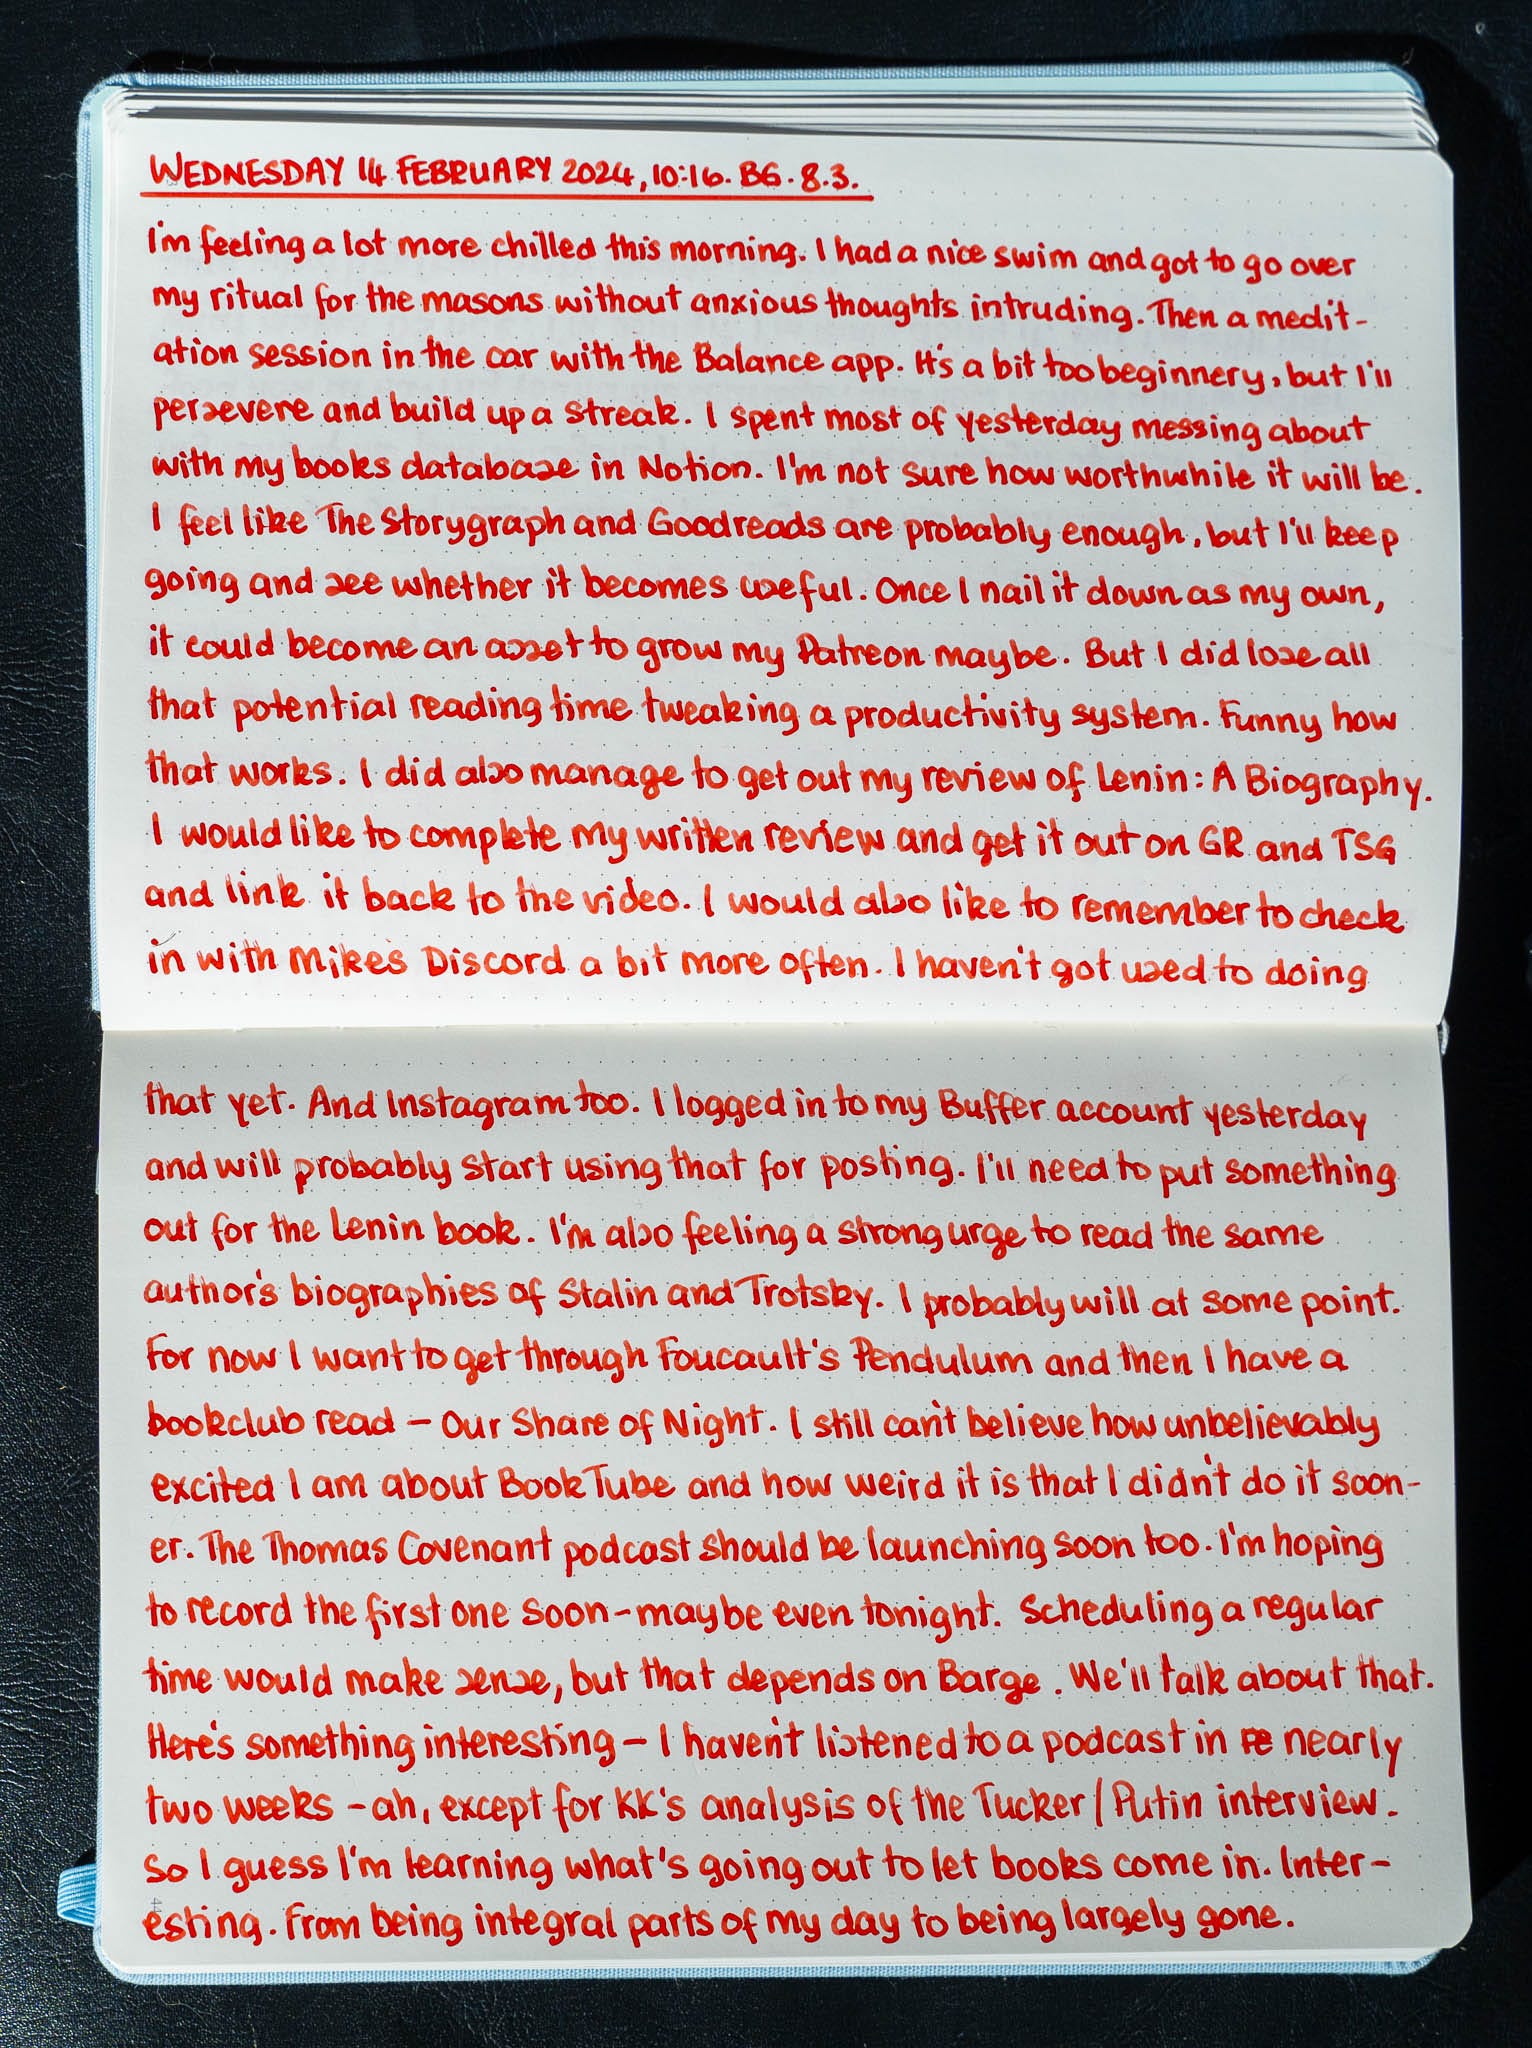 WEDNESDAY 14 FEBRUARY 2024, 10:16. BG. 8.3.
I'm feeling a lot more chilled this morning. I had a nice swim and got to go over
my ritual for the masons without anxious thoughts intruding. Then a medit-
ation session in the car with the Balance app. It's a bit too beginnery, but I'll
persevere and build up a streak. I spent most of yesterday messing about
with my books database in Notion. I'm not sure how worthwhile it will be.
I feel like The Storygraph and Goodreads are probably enough, but I'll keep
going and see whether it becomes useful. Once I nail it down as my own,
it could become an asset to grow my Patreon maybe. But I did lose all
that potential reading time tweaking a productivity system. Funny how
that works. I did also manage to get out my review of Lenin: A Biography.
I would like to complete my written review and get it out on GR and TSG
and link it back to the video. I would also like to remember to check
in with Mike's Discord a bit more often. I haven't got used to doing
that yet. And Instagram too. I logged in to my Buffer account yesterday
and will probably start using that for posting. I'll need to put something
out for the Lenin book. I'm also feeling a strong urge to read the same
author's biographies of Stalin and Trotsky. I probably will at some point.
For now I want to get through Foucault's Pendulum and then I have a
bookclub read – Our Share of Night. I still can't believe how unbelievably
excited I am about BookTube and how weird it is that I didn't do it soon-
er. The Thomas Covenant podcast should be launching soon too. I'm hoping
to record the first one soon – maybe even tonight. Scheduling a regular
time would make sense, but that depends on Barge. We'll talk about that.
Here's something interesting – I haven't listened to a podcast in nearly
two weeks – ah, except for KK's analysis of the Tucker/Putin interview.
So I guess I'm learning what's going out to let books come in. Inter-
esting. From being integral parts of my day to being largely gone.